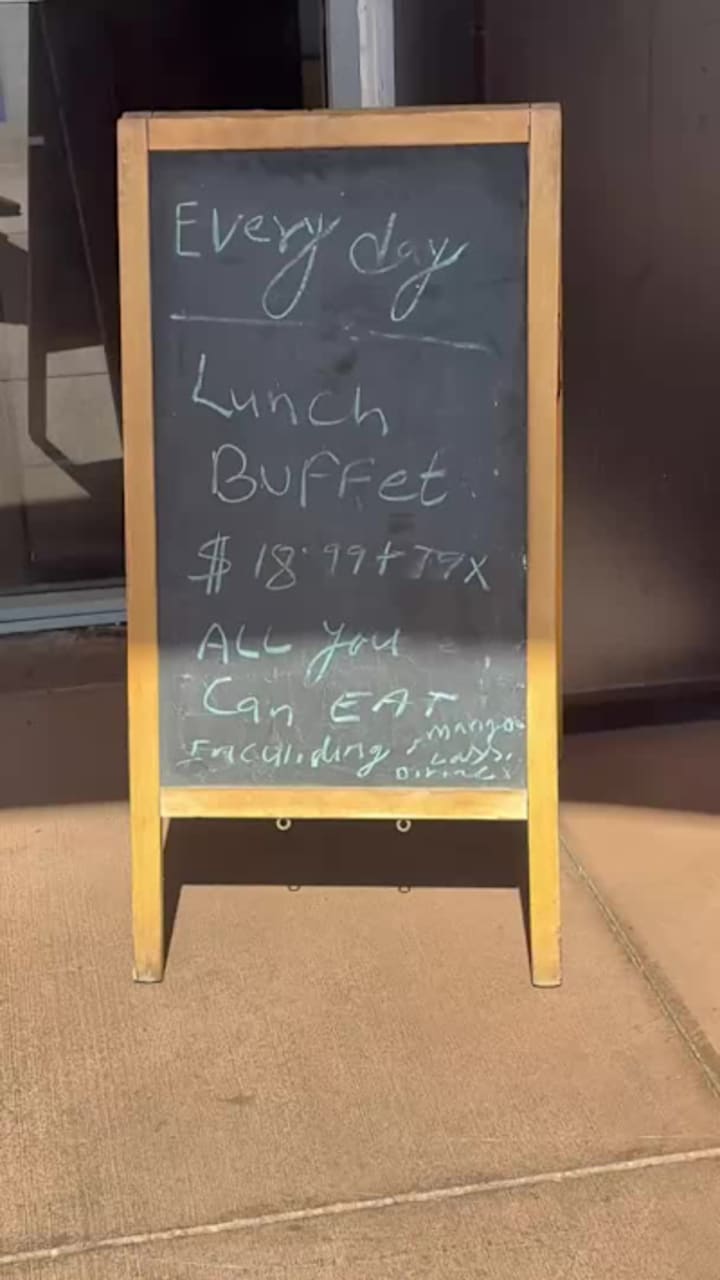 Every day
Lunch
BUFFet
$ 18.99 + TAX
ALL you
Can EAT
mango
Lassi